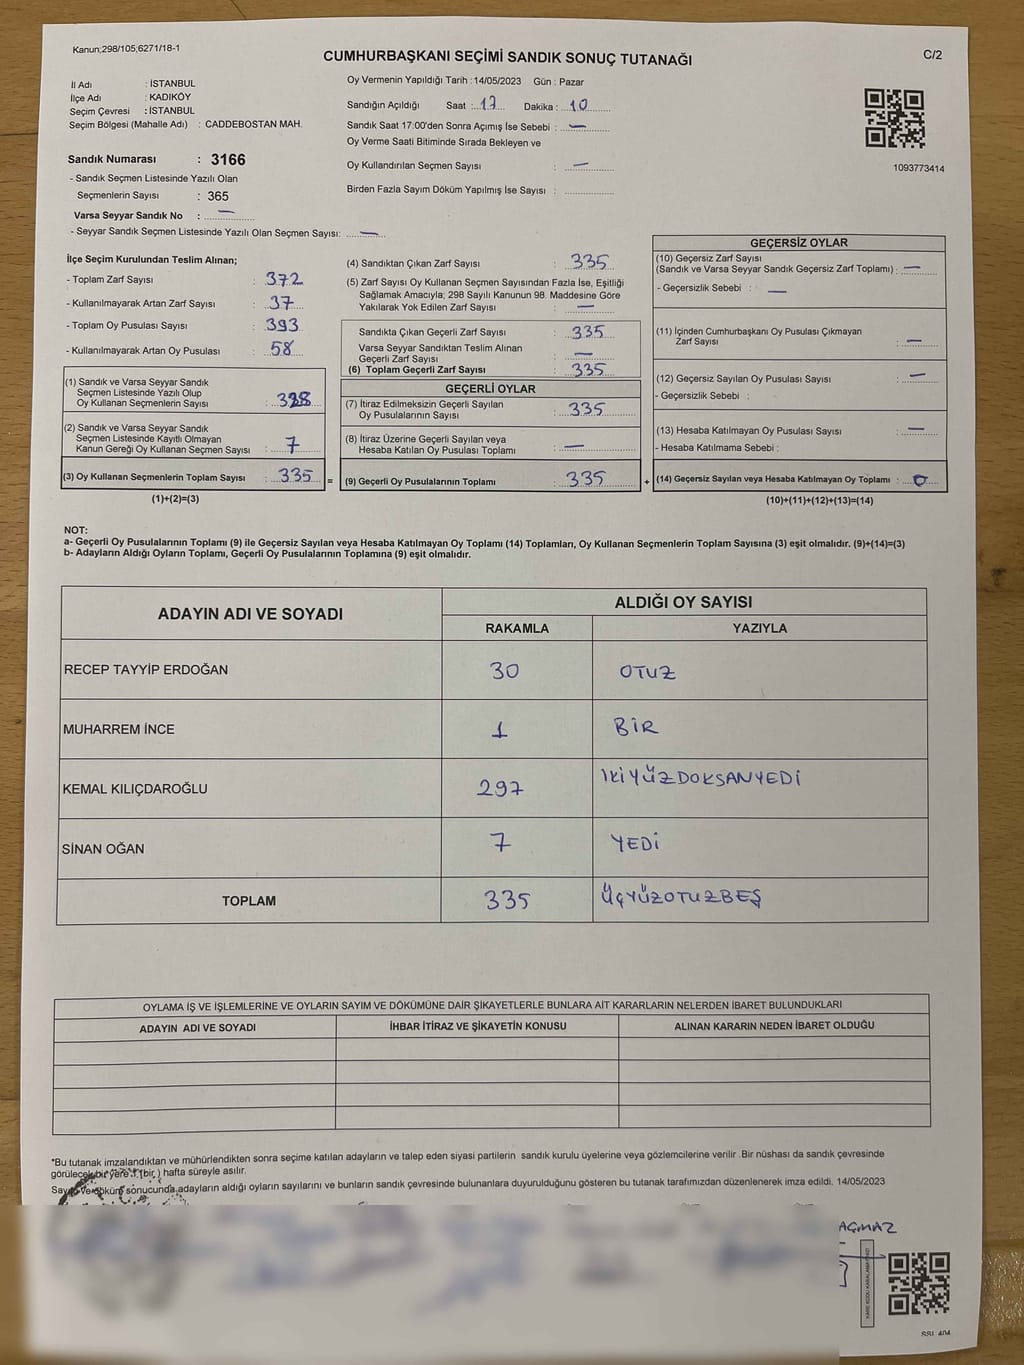 Kanun;298/105;6271/18-1
CUMHURBAŞKANI SEÇİMİ SANDIK SONUÇ TUTANAĞI
C/2
İl Adı : İSTANBUL
İlçe Adı : KADIKÖY
Seçim Çevresi : İSTANBUL
Seçim Bölgesi (Mahalle Adı) : CADDEBOSTAN MAH.
Oy Vermenin Yapıldığı Tarih : 14/05/2023 Gün : Pazar
Sandığın Açıldığı Saat : 17 Dakika : 10
Sandık Saat 17:00'den Sonra Açımış İse Sebebi : —
Oy Verme Saati Bitiminde Sırada Bekleyen ve
Oy Kullandırılan Seçmen Sayısı : —
Birden Fazla Sayım Döküm Yapılmış İse Sayısı :
1093773414
Sandık Numarası : 3166
- Sandık Seçmen Listesinde Yazılı Olan
Seçmenlerin Sayısı : 365
Varsa Seyyar Sandık No : —
- Seyyar Sandık Seçmen Listesinde Yazılı Olan Seçmen Sayısı: —
İlçe Seçim Kurulundan Teslim Alınan;
- Toplam Zarf Sayısı : 372
- Kullanılmayarak Artan Zarf Sayısı : 37
- Toplam Oy Pusulası Sayısı : 393
- Kullanılmayarak Artan Oy Pusulası : 58
(1) Sandık ve Varsa Seyyar Sandık
Seçmen Listesinde Yazılı Olup
Oy Kullanan Seçmenlerin Sayısı : 328
(2) Sandık ve Varsa Seyyar Sandık
Seçmen Listesinde Kayıtlı Olmayan
Kanun Gereği Oy Kullanan Seçmen Sayısı : 7
(3) Oy Kullanan Seçmenlerin Toplam Sayısı : 335 =
(1)+(2)=(3)
(4) Sandıktan Çıkan Zarf Sayısı : 335
(5) Zarf Sayısı Oy Kullanan Seçmen Sayısından Fazla İse, Eşitliği
Sağlamak Amacıyla; 298 Sayılı Kanunun 98. Maddesine Göre
Yakılarak Yok Edilen Zarf Sayısı : —
Sandıkta Çıkan Geçerli Zarf Sayısı : 335
Varsa Seyyar Sandıktan Teslim Alınan
Geçerli Zarf Sayısı : —
(6) Toplam Geçerli Zarf Sayısı : 335
GEÇERLİ OYLAR
(7) İtiraz Edilmeksizin Geçerli Sayılan
Oy Pusulalarının Sayısı : 335
(8) İtiraz Üzerine Geçerli Sayılan veya
Hesaba Katılan Oy Pusulası Toplamı : —
(9) Geçerli Oy Pusulalarının Toplamı : 335 +
GEÇERSİZ OYLAR
(10) Geçersiz Zarf Sayısı
(Sandık ve Varsa Seyyar Sandık Geçersiz Zarf Toplamı) : —
- Geçersizlik Sebebi : —
(11) İçinden Cumhurbaşkanı Oy Pusulası Çıkmayan
Zarf Sayısı : —
(12) Geçersiz Sayılan Oy Pusulası Sayısı : —
- Geçersizlik Sebebi :
(13) Hesaba Katılmayan Oy Pusulası Sayısı : —
- Hesaba Katılmama Sebebi :
(14) Geçersiz Sayılan veya Hesaba Katılmayan Oy Toplamı : 0
(10)+(11)+(12)+(13)=(14)
NOT:
a- Geçerli Oy Pusulalarının Toplamı (9) ile Geçersiz Sayılan veya Hesaba Katılmayan Oy Toplamı (14) Toplamları, Oy Kullanan Seçmenlerin Toplam Sayısına (3) eşit olmalıdır. (9)+(14)=(3)
b- Adayların Aldığı Oyların Toplamı, Geçerli Oy Pusulalarının Toplamına (9) eşit olmalıdır.
ADAYIN ADI VE SOYADI ALDIĞI OY SAYISI
RAKAMLA YAZIYLA
RECEP TAYYİP ERDOĞAN 30 OTUZ
MUHARREM İNCE 1 BİR
KEMAL KILIÇDAROĞLU 297 İKİYÜZDOKSANYEDİ
SİNAN OĞAN 7 YEDİ
TOPLAM 335 ÜÇYÜZOTUZBEŞ
OYLAMA İŞ VE İŞLEMLERİNE VE OYLARIN SAYIM VE DÖKÜMÜNE DAİR ŞİKAYETLERLE BUNLARA AİT KARARLARIN NELERDEN İBARET BULUNDUKLARI
ADAYIN ADI VE SOYADI İHBAR İTİRAZ VE ŞİKAYETİN KONUSU ALINAN KARARIN NEDEN İBARET OLDUĞU
*Bu tutanak imzalandıktan ve mühürlendikten sonra seçime katılan adayların ve talep eden siyasi partilerin sandık kurulu üyelerine veya gözlemcilerine verilir .Bir nüshası da sandık çevresinde
görülecek bir yere 1 (bir ) hafta süreyle asılır.
Sayım ve döküm sonucunda adayların aldığı oyların sayılarını ve bunların sandık çevresinde bulunanlara duyurulduğunu gösteren bu tutanak tarafımızdan düzenlenerek imza edildi. 14/05/2023
AÇMAZ